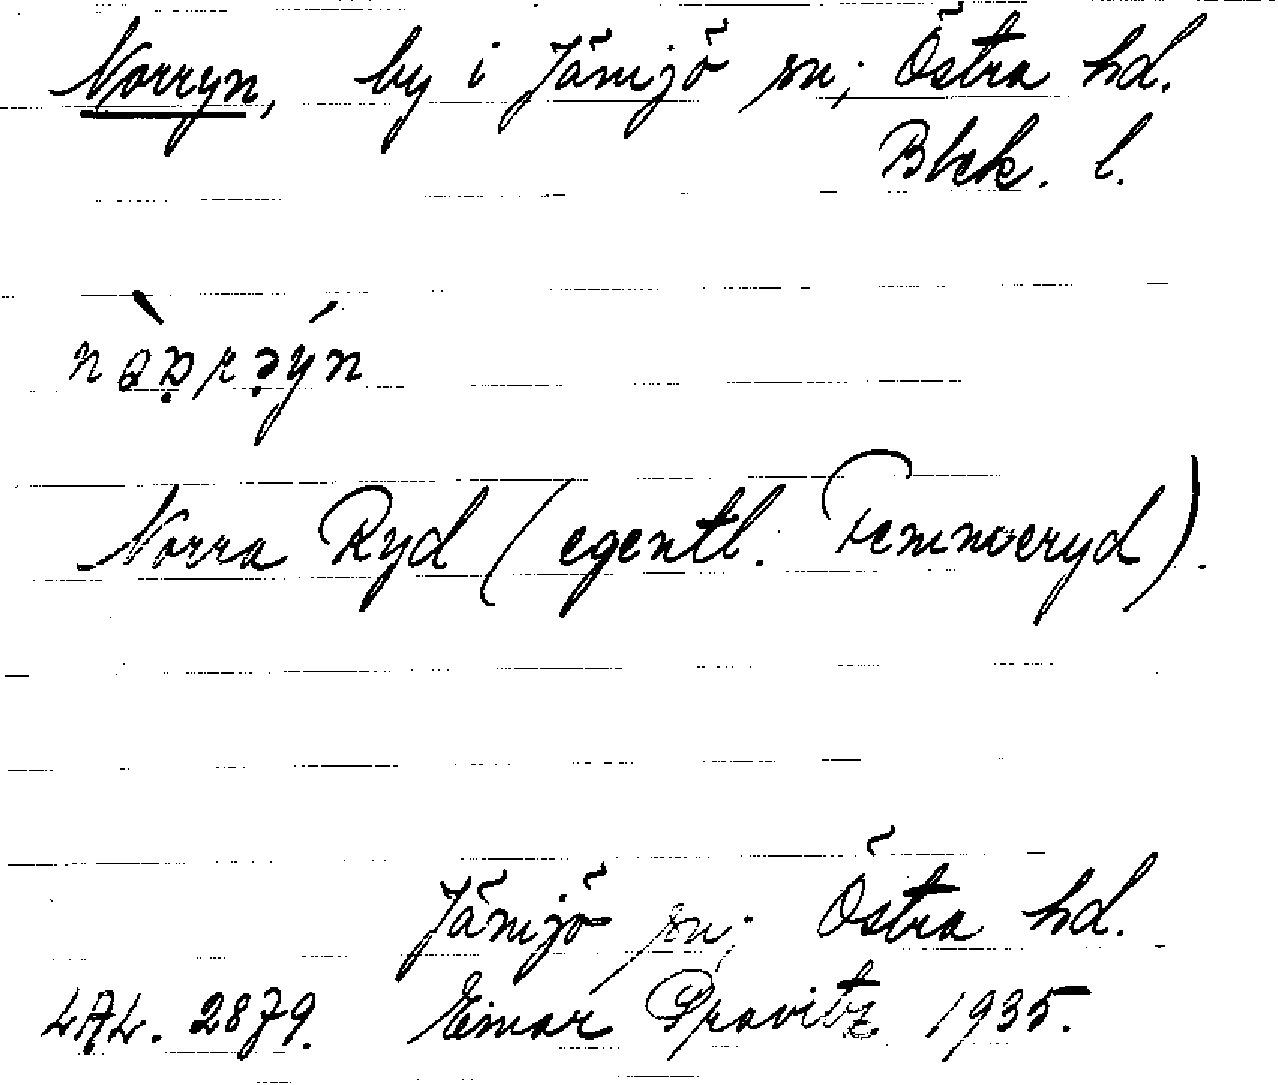 Norryn, by i Jämjö sn; Östra hd.
Blek. l.
Norra Ryd (egentl. Femnoeryd).
Jämjö sn; Östra hd.
LAL. 2879. Einar Pravitz 1935.